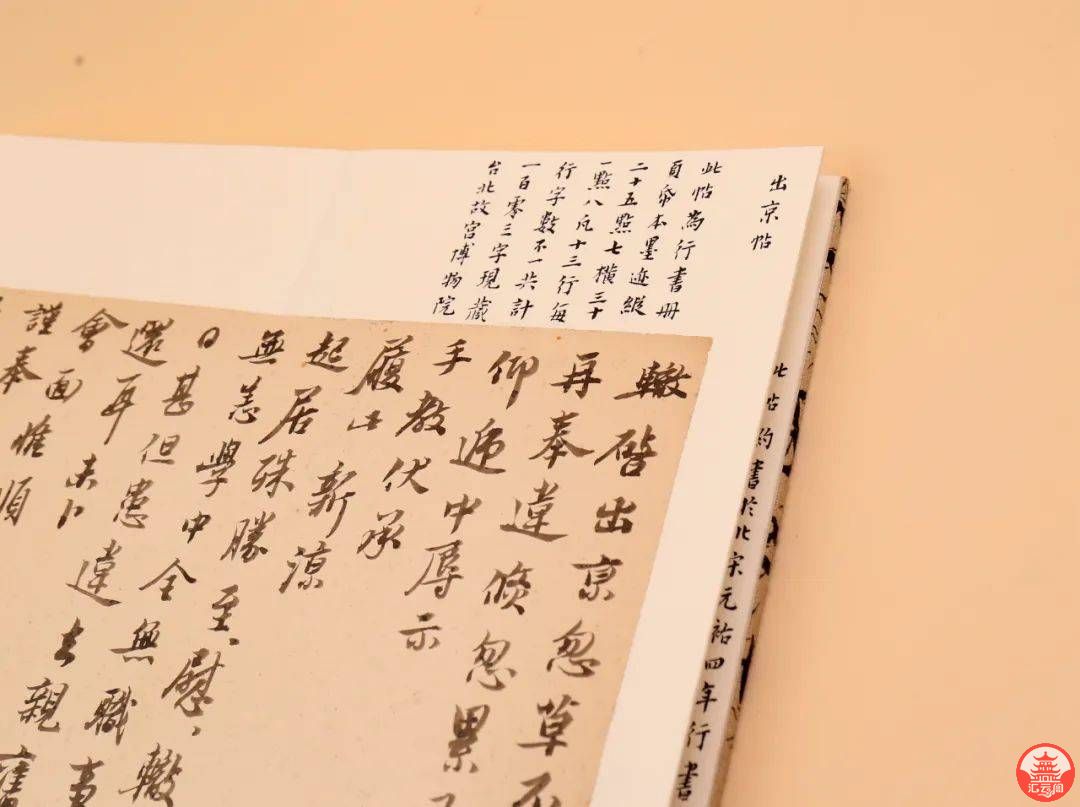 出京帖
此帖為行書冊
頁帋本墨迹縱
二十五點七橫三十
一點八凡十三行每
行字數不一共計
一百零三字現藏
台北故宮博物院
此帖約書於北宋元祐四年行書
轍啓出京忽草不
再奉違倏忽累
仰遞中辱示
手教伏承
履此新涼
起居殊勝至、慰、轍
無恙學中全無職事
日甚但患違去親舊
還耳未卜
會面惟順
謹奉